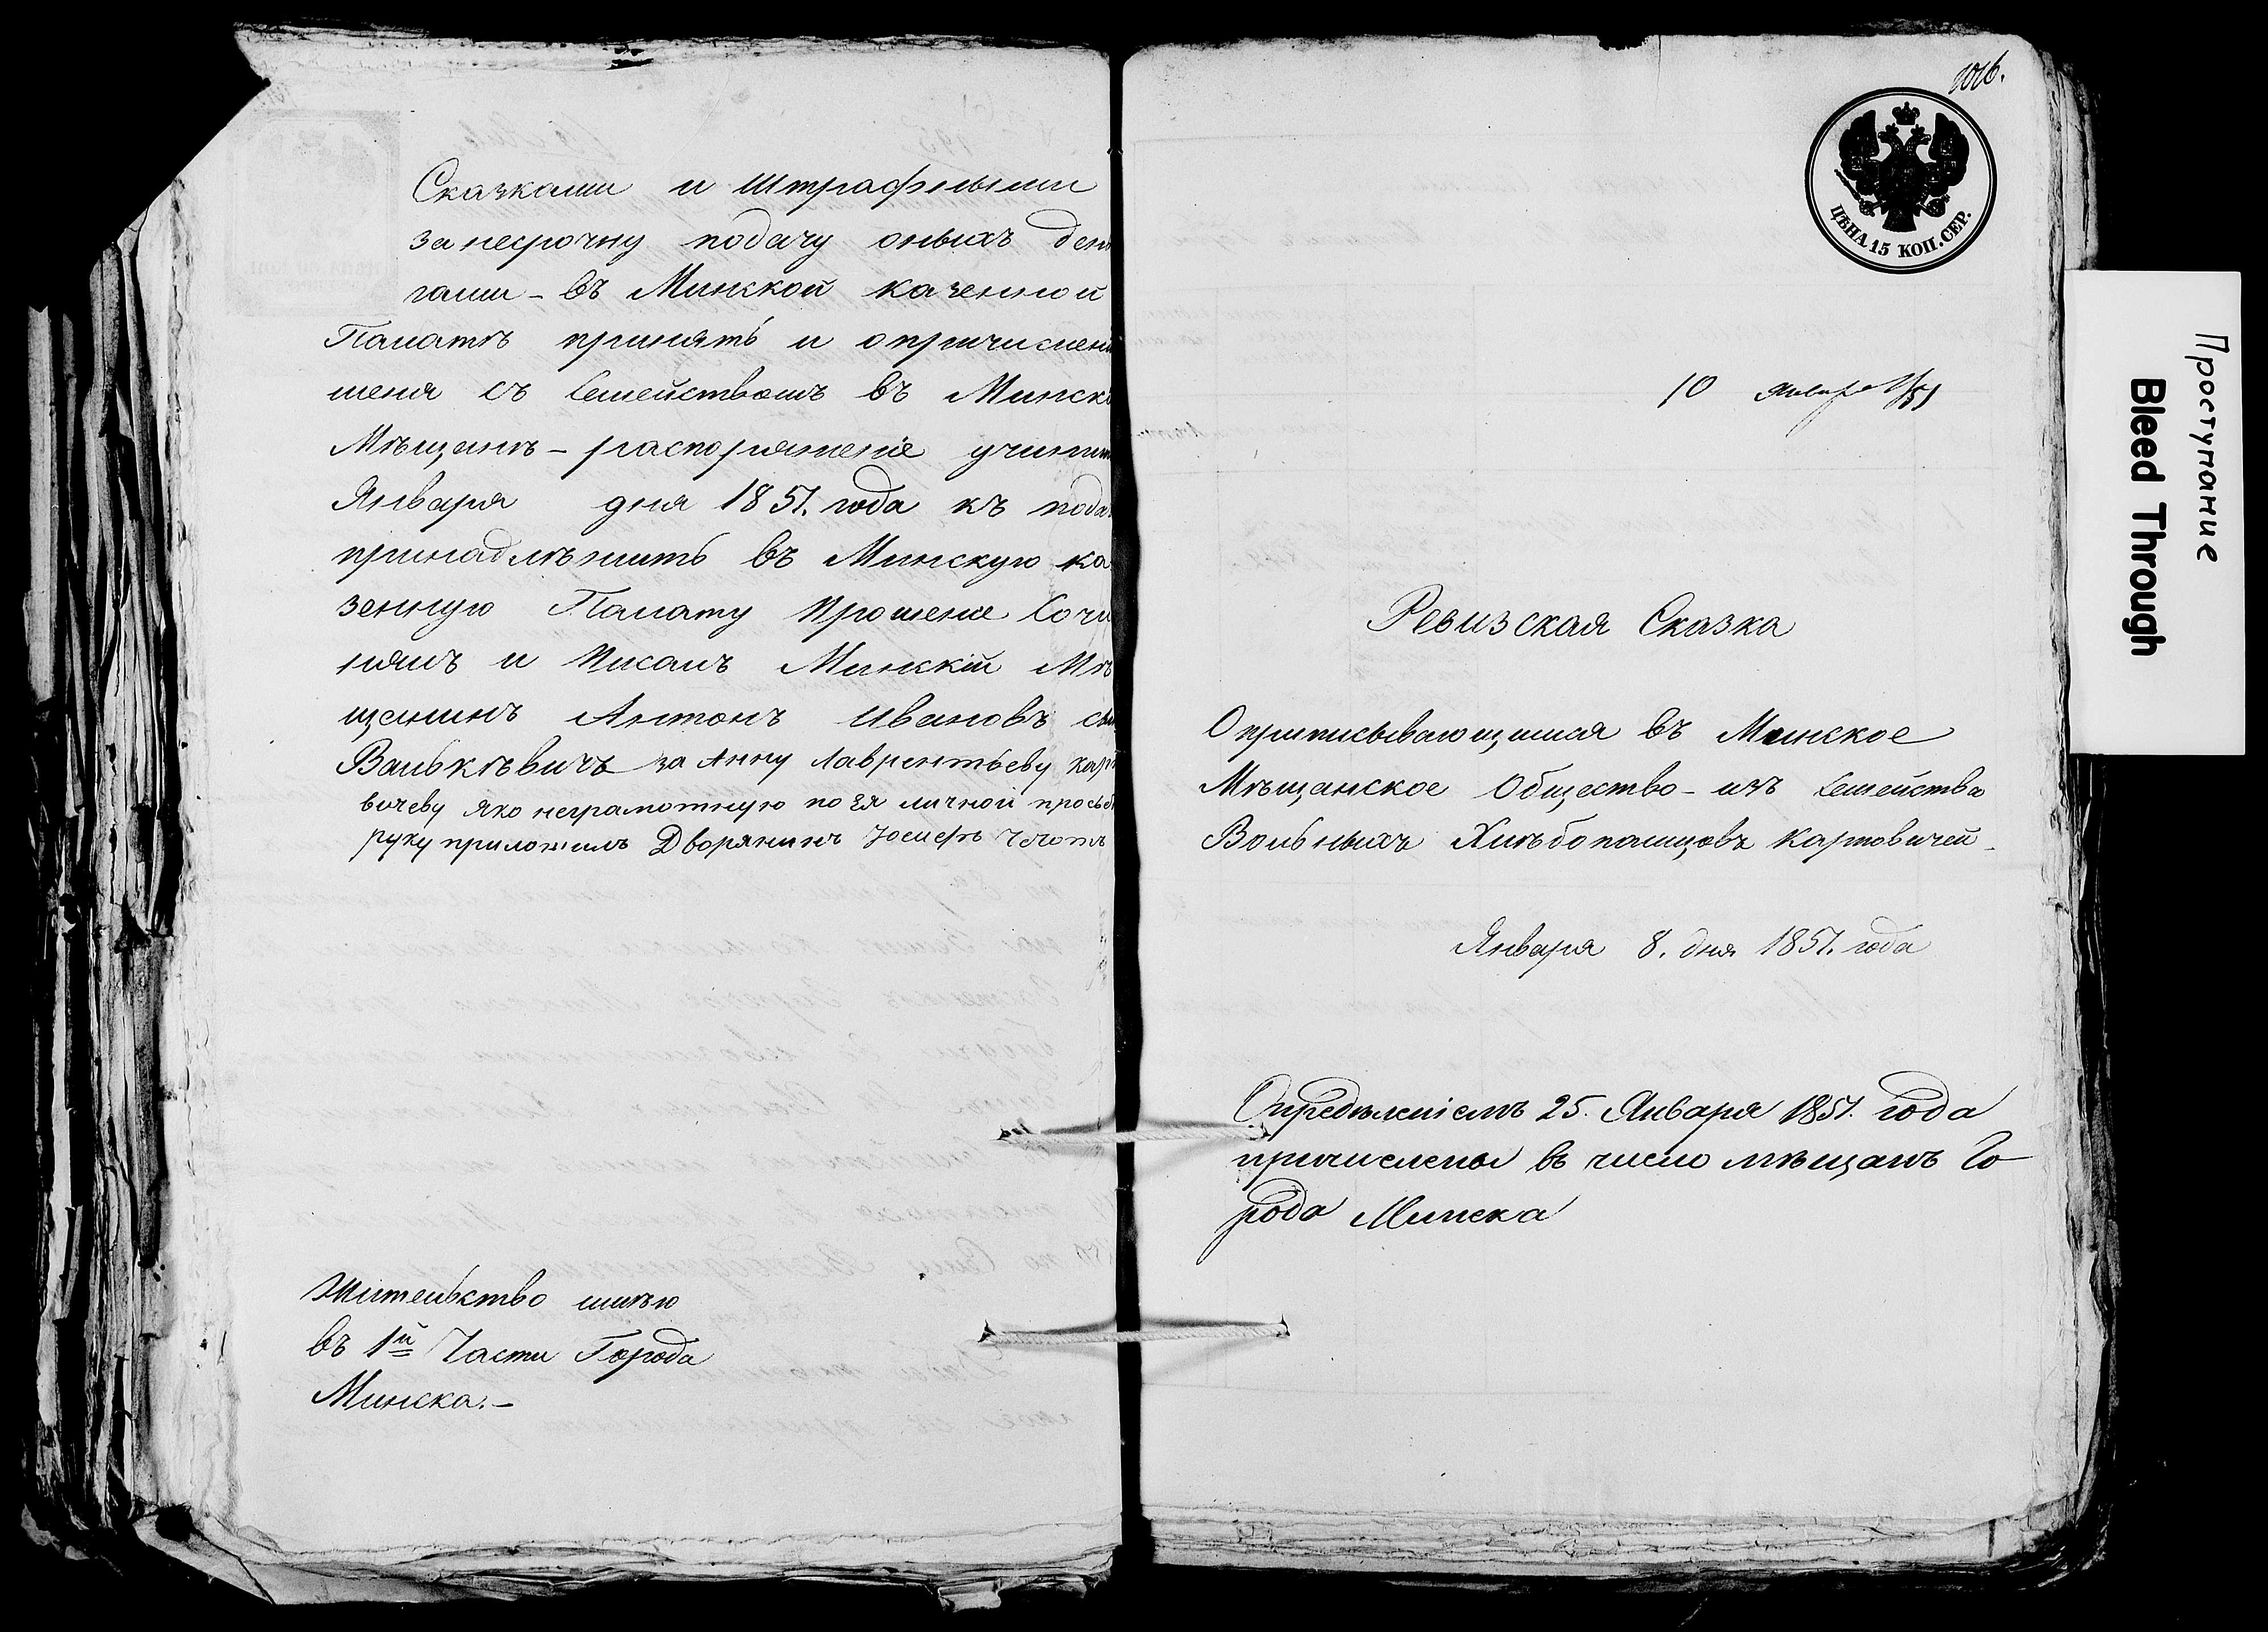 Сказками и Штрафными
за несрочну подачу оныхъ день
гами - въ Минской казенной
Палатѣ принять и опричислени
меня съ Семействомъ въ Минск
Мѣщанѣ - распоряженіе учинит
Января дня 1851. года къ пода
принадлѣжитъ въ Минскую ка
зенную Палату Прошеніе Сочи
нялъ и Писалъ Минскій Мѣ
щанинъ Антонъ Ивановъ сы
Валькѣвичъ за Анну Лаврентьеву Карт
вичеву яко неграмотную по Ея личной прозьб
руку приложилъ Дворянинъ Іосифъ
Жительство имѣю
въ 1й Части Города
Минска. -
1016.
ЦѢНА 15 КОП. СЕР.
10 Января 1851
Ревизская Сказка
О приписывающимся въ Минское
Мѣщанское Общество - изъ Семейства
Вольныхъ Хлѣбопашцовъ Картовичей -
Января 8. дня 1851. года
Опредѣленіемъ 25. Января 1851. года
причислены въ число мѣщанъ Го
рода Минска
Проступание
Bleed Through